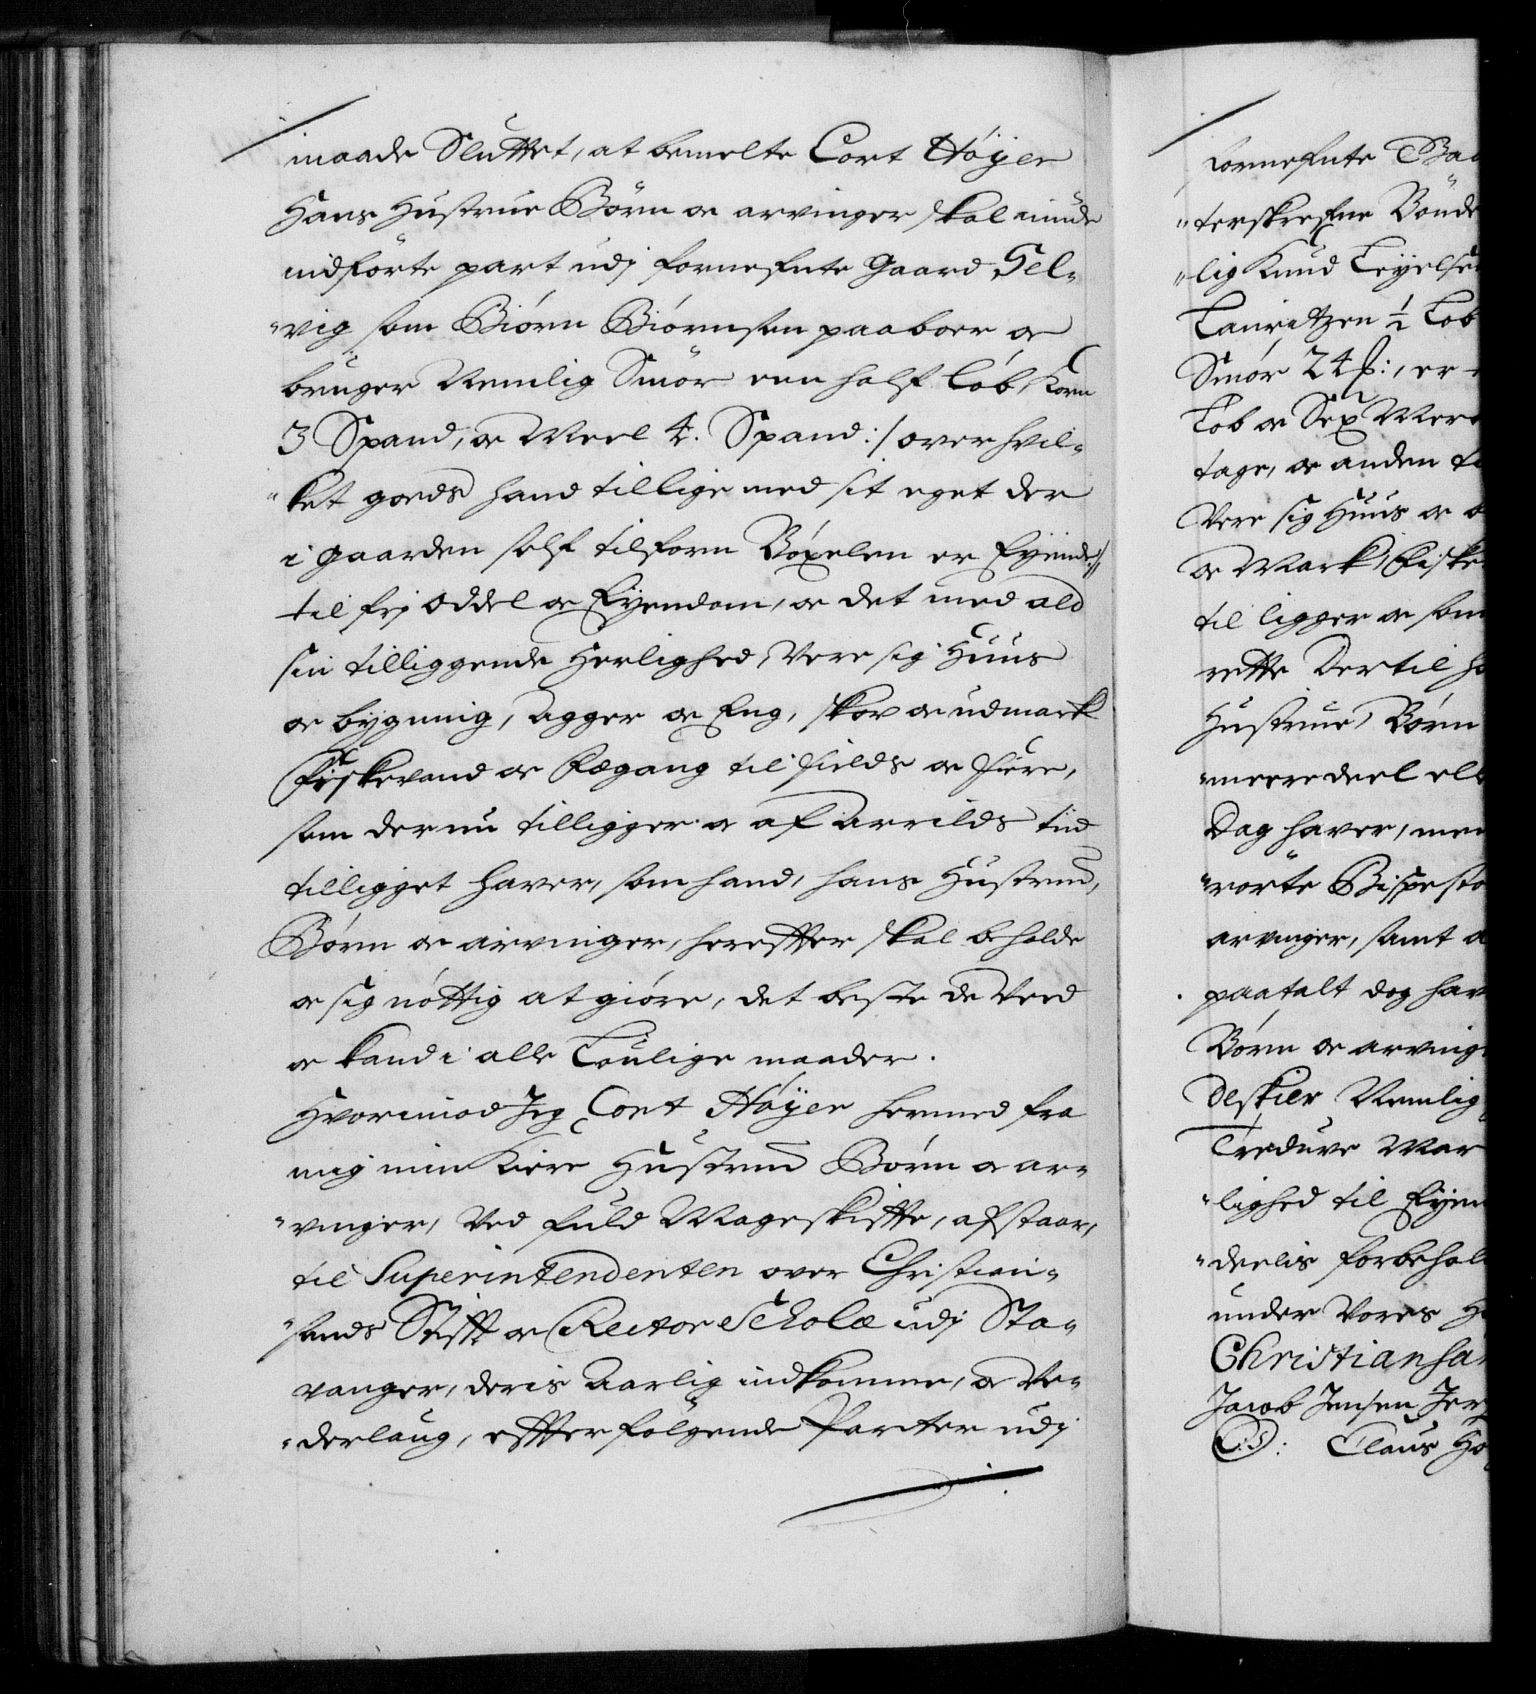 maade Sluttet, at bemelte Cort Høÿer
Hans Hustrue Børn oc arvinger skal niude
indførte part udj fornefnte Gaard Sel-
"vig som Biørn Biørnsen paaboer oc
bruger Nemlig Smør een half løb, Korn
3 Spand, oc Meel 4. Spand :/ over hvil-
"ket goeds hand tillige med sit eget der
i gaarden self tilforn Bøxelen er Eyende :/
til frj oddel oc Eyendom, oc det med ald
sin tilliggende Herlighed, Vere sig Huus
oc bygning, Agger oc Eng, skov oc udmark
Fiskevand oc Fægang til fields oc fiere,
som der nu tilligger oc af Arrilds tid
tilligget haver, som hand, hans Hustrue,
Børn oc arvinger, herefter skal beholde
oc sig nøttig at giøre, det beste de Veed
oc kand i alle Loulige maader.
Hvorimod Jeg Cort Høÿer hermed fra
mig min Kiere Hustrue Børn oc ar-
"vinger, Ved fuld Mageskifte, afstaar,
til Superintendenten over Christian-
"sands Stift oc Rector Scholæ udj Sta-
vanger, deris Aarlig indkomme, oc Ve-
"derlaug, effterfølgende Parter udj
fornefnte
"terskrefne Bønde
"lig Knud
Lauritzen ½ Løb
Smør 24 ß:, er
Løb oc Sex Mere
tage, oc anden
Vere sig Huus oc
oc Mark, Fiske
til ligger oc som
rette Dertil
Hustrue, Børn
"meere deel
Dag haver, men
"rørte Bispesto
arvinger, samt
paatalt dog hav
Børn oc arving
Nemlig
Treduve Mar
"lighed til Eyen
"deelis forbehol
under Vores
Christiansa
Jacob Jensen
Claus